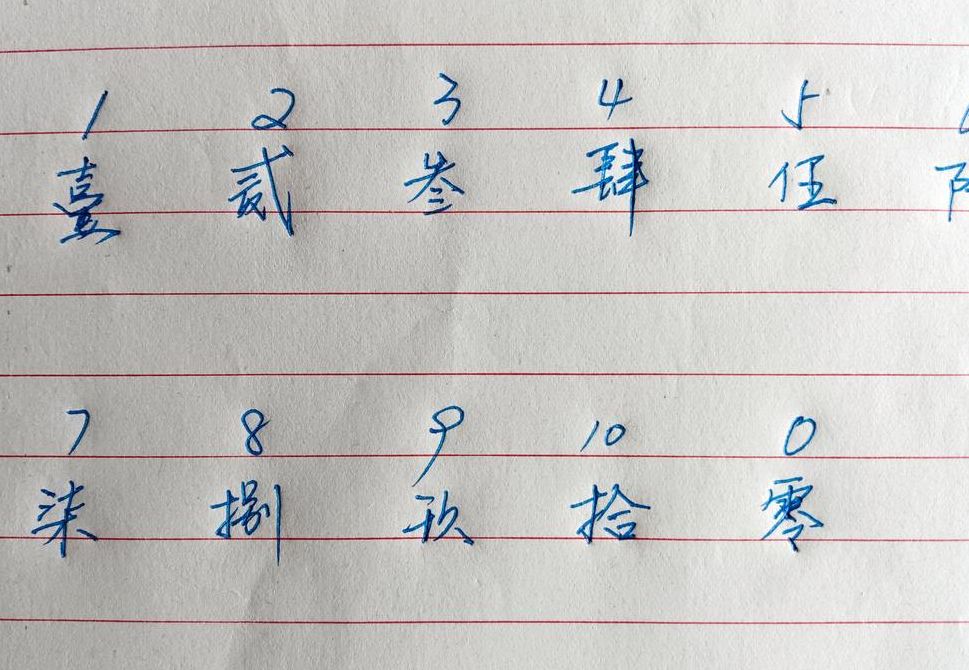 1 2 3 4 5
壹 贰 叁 肆 伍
7 8 9 10 0
柒 捌 玖 拾 零